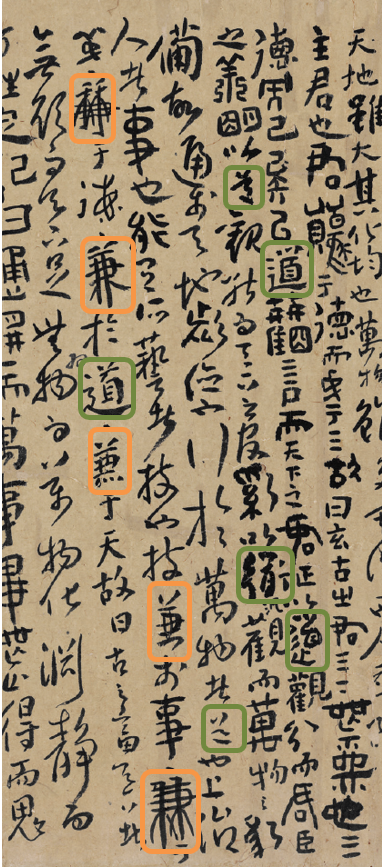 天地雖大其化均也萬物雖
主君也君原于德而成于天故曰玄古之君天下無為也天
德而已矣以道觀言而天下之君正以道觀分而君臣
之義明以道觀能而天下之官治以道汎觀而萬物之應
備故通於天地者德也行於萬物者道也上治
人者事也能有所藝者技也技兼於事事兼
義兼于德德兼於道道兼于天故曰古之畜天下者
無欲而天下足無為而萬物化淵靜而
姓定記曰通於一而萬事畢無心得而鬼